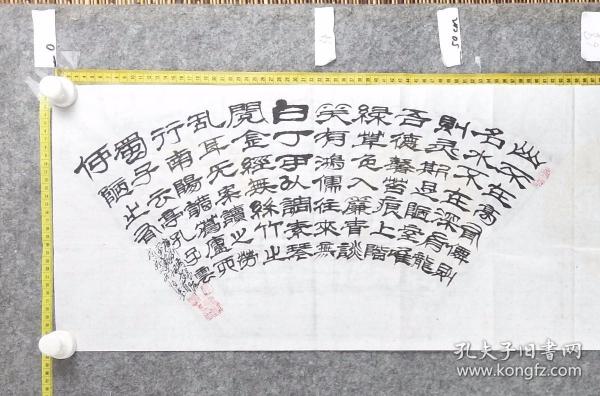 山不在高有僊則
名水不在深有龍
則灵斯是陋室惟
吾德馨苔痕上階
緑草色入簾青談
笑有鴻儒往來無
白丁可以調素琴
閲金經無絲竹之
乱耳无案牘之勞
行南陽諸葛廬西
蜀子云亭孔子雲
何陋之有
0
50cm
孔夫子旧书网
www.kongfz.com